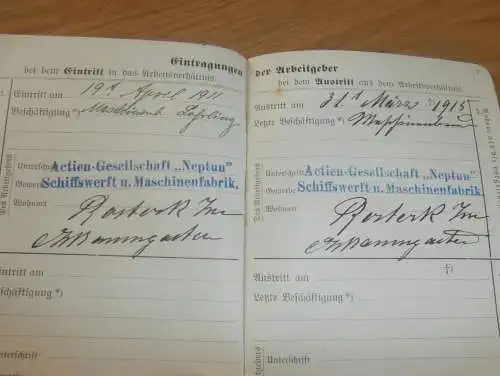 Eintragungen
bei dem Eintritt in das Arbeitsverhältnis.
Eintritt am 19t April 1911
Beschäftigung *) Maschinenb. Lehrling
Unterschrift
Actien-Gesellschaft „Neptun"
Gewerbe
Schiffswerft u. Maschinenfabrik.
Wohnort Rostock
Des Arbeitgebers
Baumgarten
Eintritt am
Beschäftigung *)
Unterschrift
der Arbeitgeber
bei dem Austritt aus dem Arbeitsverhältnis.
Austritt am 31t März 1915
Letzte Beschäftigung *) Maschinenbau
Unterschrift
Actien-Gesellschaft „Neptun"
Gewerbe
Schiffswerft u. Maschinenfabrik
Wohnort Rostock
Des Arbeitgebers
Baumgarten
†)
Austritt am
Letzte Beschäftigung *)
Unterschrift